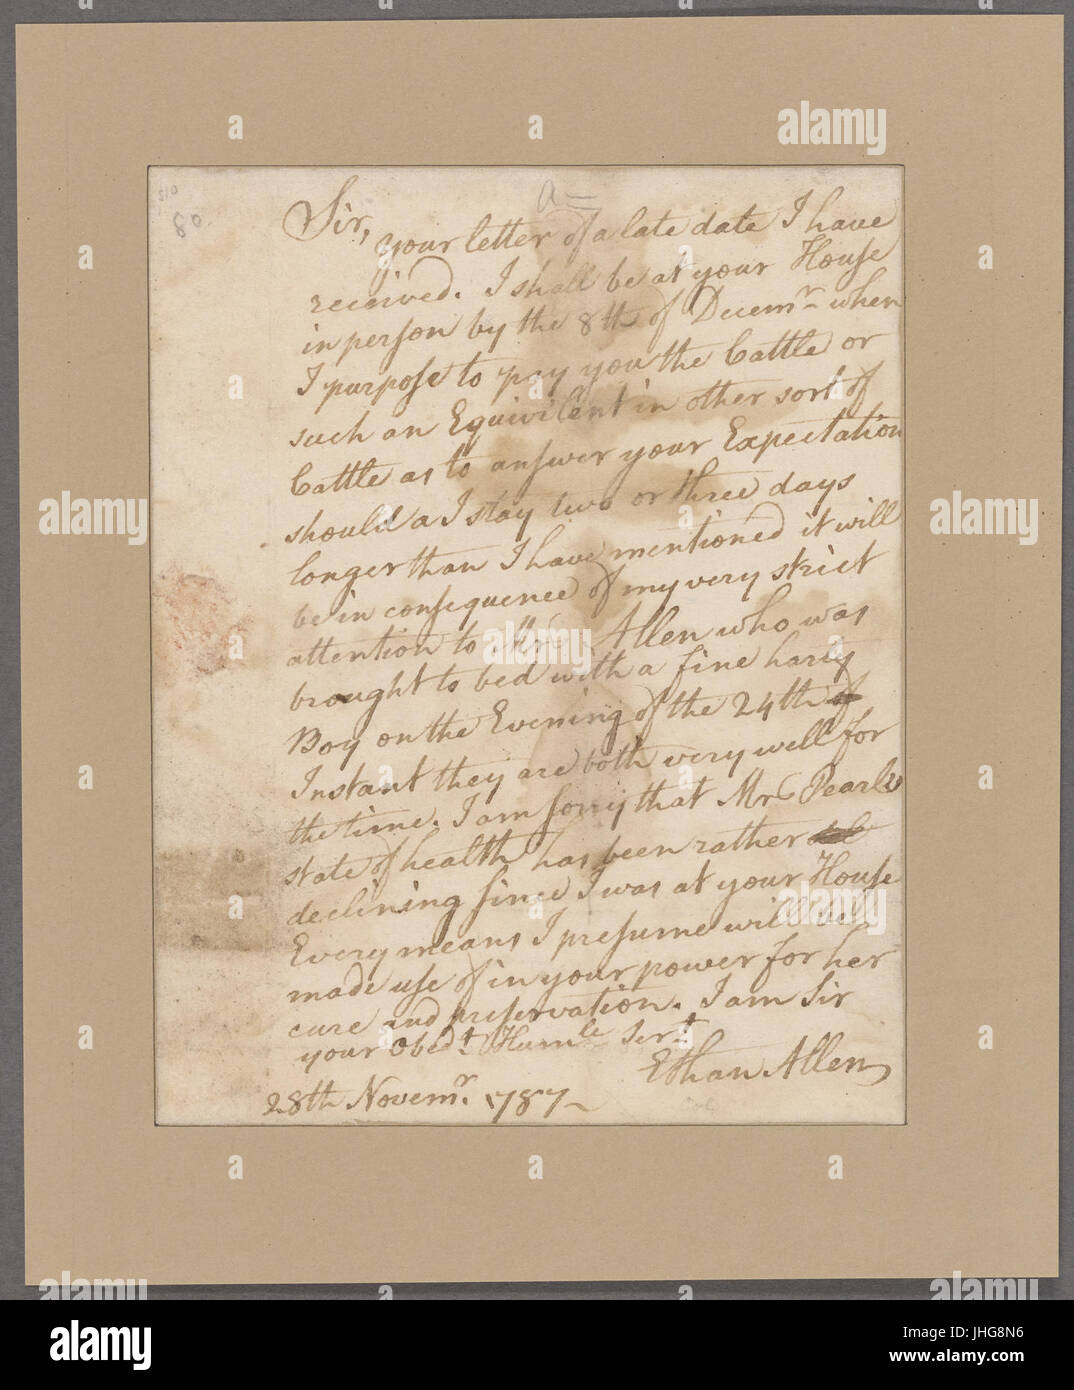 a
510
80
Sir,
your letter of a late date I have
received. I shall be at your House
in person by the 8th of Decemr when
I purpose to pay you the Cattle or
such an Equivilent in other sort of
Cattle as to answer your Expectation
should a I stay two or three days
longer than I have mentioned it will
be in consequence of my very strict
attention to Mrs Allen who was
brought to bed with a fine harty
Boy on the Evening of the 24th of
Instant they are both very well for
the time. I am sorry that Mrs Pearls
state of health has been rather
declining since I was at your House
Every means I presume will be
made use of in your power for her
cure and preservation. I am Sir
your Obedt Humle Sert
Ethan Allen
28th Novemr. 1787
alamy
Image ID: JHG8N6
www.alamy.com